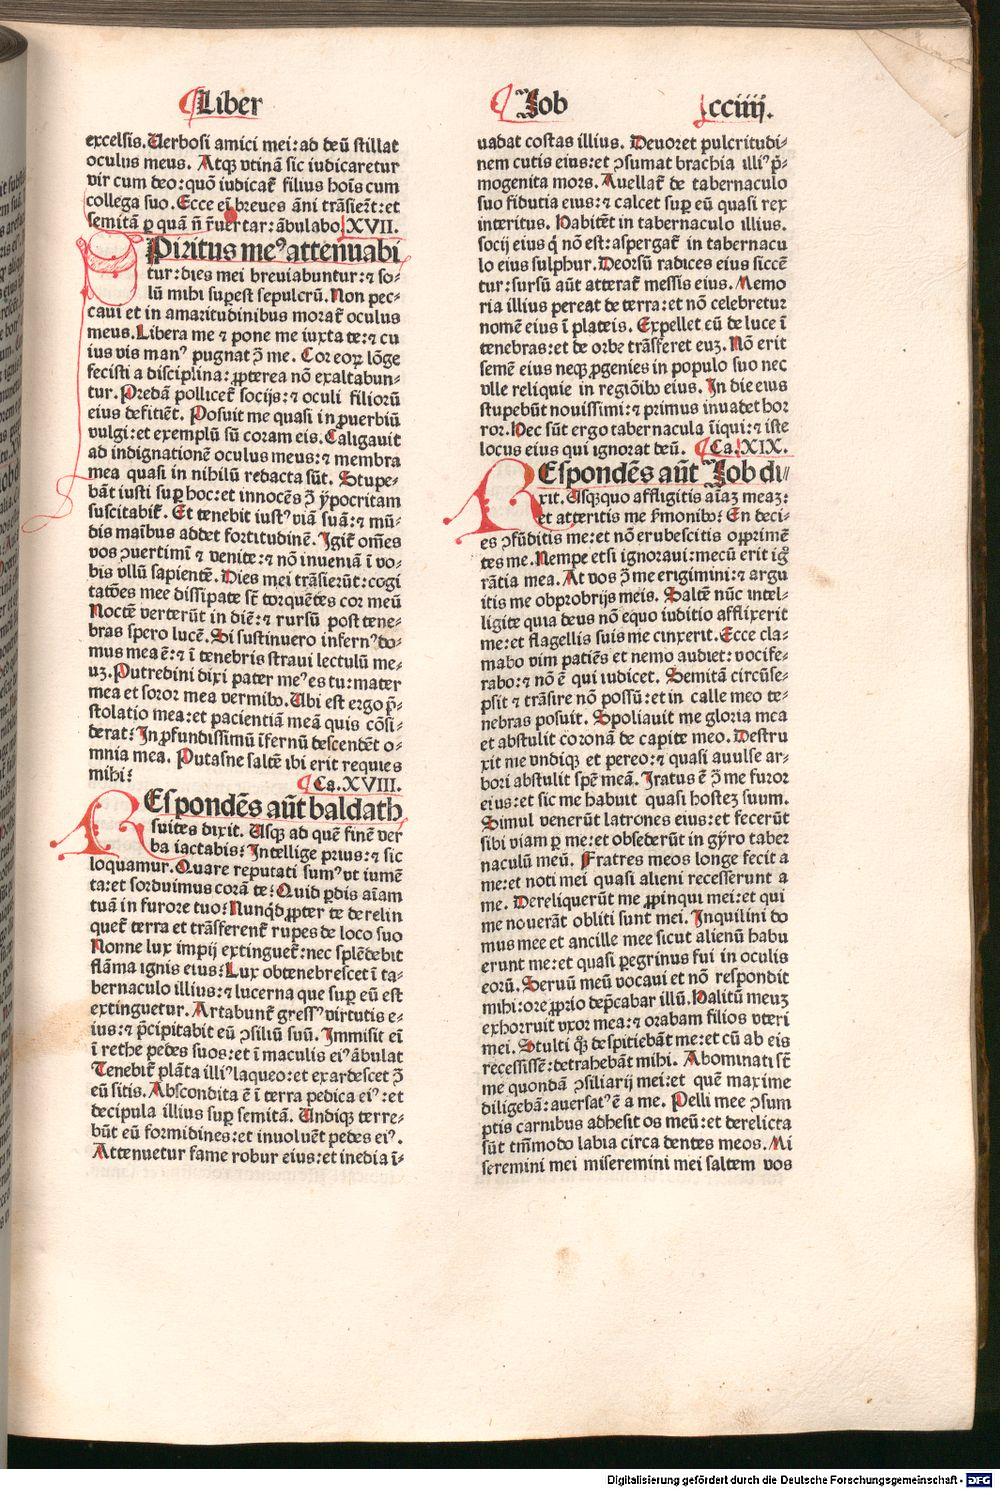 Liber
Job
cciiij.
excelsis. Uerbosi amici mei: ad deũ stillat
oculus meus. Atqꝫ vtinã sic iudicaretur
vir cum deo: quõ iudicat᷑ filius hoĩs cum
collega suo. Ecce eĩ breues ãni trãsieñt: et
semitã ꝑ quã ñ r̃uertar: ãbulabo XVII.
SPiritus meꝰ attenuabi
tur: dies mei breuiabuntur: ⁊ so⸗
lũ mihi suꝑest sepulcrũ. Non pec⸗
caui et in amaritudinibus morat᷑ oculus
meus. Libera me ⁊ pone me iuxta te: ⁊ cu
ius vis manꝰ pugnat ↄ̃ me. Cor eoꝝ lõge
fecisti a disciplina: ꝓpterea nõ exaltabun⸗
tur. Predã pollicet᷑ socijs: ⁊ oculi filiorũ
eius deficiẽt. Posuit me quasi in ꝓuerbiũ
vulgi: et exemplũ sũ coram eis. Caligauit
ad indignationẽ oculus meus: ⁊ membra
mea quasi in nihilũ redacta sũt. Stupe⸗
bãt iusti suꝑ hoc: et innocẽs ↄ̃ ypocritam
suscitabit᷑. Et tenebit iustꝰ viã suã: ⁊ mũ⸗
dis maĩbus addet fortitudinẽ. Igit᷑ om̃es
vos ↄuertimĩ ⁊ venite: ⁊ nõ inueniã ĩ vo⸗
bis vllũ sapientẽ. Dies mei trãsierũt: cogi
tatões mee dissipate st̃ torquẽtes cor meũ
Noctẽ verterũt in diẽ: ⁊ rursũ post tene⸗
bras spero lucẽ. Si sustinuero infernꝰ do⸗
mus mea ẽ: ⁊ ĩ tenebris straui lectulũ me⸗
uꝫ. Putredini dixi pater meꝰ es tu: mater
mea et soror mea vermibꝰ. Ubi est ergo p̃⸗
stolatio mea: et pacientiã meã quis cõsi⸗
derat? In ꝓfundissimũ ĩfernũ descendẽt o⸗
mnia mea. Putasne saltẽ ibi erit requies
mihi?
Ca. XVIII.
REspondẽs aũt baldath
suites dixit. Usqꝫ ad quẽ finẽ ver
ba iactabis? Intellige prius: ⁊ sic
loquamur. Quare reputati sumꝰ vt iumẽ
ta: et sorduimus corã te? Quid ꝑdis aĩam
tuã in furore tuo? Nunqͥd ꝓpter te derelin
quet᷑ terra et trãsferent᷑ rupes de loco suo
Nonne lux impij extinguet᷑: nec splẽdebit
flãma ignis eius? Lux obtenebrescet ĩ ta⸗
bernaculo illius: ⁊ lucerna que suꝑ eũ est
extinguetur. Artabunt᷑ gressꝰ virtutis e⸗
ius: ⁊ p̃cipitabit eũ ↄsiliũ suũ. Immisit eĩ
ĩ rethe pedes suos: et ĩ maculis eiꝰ ãbulat
Tenebit᷑ plãta illiꝰ laqueo: et exardescet ↄ̃
eũ sitis. Abscondita ẽ ĩ terra pedica eiꝰ: et
decipula illius suꝑ semitã. Undiqꝫ terre⸗
bũt eũ formidines: et inuoluẽt pedes eiꝰ.
Attenuetur fame robur eius: et inedia ĩ⸗
uadat costas illius. Deuoret pulcritudi⸗
nem cutis eius: et ↄsumat brachia illiꝰ p̃⸗
mogenita mors. Auellat᷑ de tabernaculo
suo fidutia eius: ⁊ calcet suꝑ eũ quasi rex
interitus. Habitẽt in tabernaculo illius.
socij eius q̃ nõ est: aspergat᷑ in tabernacu
lo eius sulphur. Deorsũ radices eius siccẽ
tur: sursũ aũt atterat᷑ messis eius. Memo
ria illius pereat de terra: et nõ celebretur
nomẽ eius ĩ plateis. Expellet eũ de luce ĩ
tenebras: et de orbe trãsferet euꝫ. Nõ erit
semẽ eius neqꝫ ꝓgenies in populo suo nec
vlle reliquie in regiõibꝰ eius. In die eius
stupebũt nouissimi: ⁊ primus inuadet hor
ror. Hec sũt ergo tabernacula ĩiqui: ⁊ iste
locus eius qui ignorat deũ. Ca. XIX.
REspondẽs aũt Job di⸗
xit. Usqꝫquo affligitis aĩaꝫ meaꝫ:
et atteritis me s̃monibꝰ? En deci⸗
es ↄfũditis me: et nõ erubescitis oꝓrimẽ
tes me. Nempe etsi ignoraui: mecũ erit ig̃
rãtia mea. At vos ↄ̃ me erigimini: ⁊ argu
itis me obprobrijs meis. Saltẽ nũc intel⸗
ligite quia deus nõ equo iuditio afflixerit
me: et flagellis suis me cinxerit. Ecce cla⸗
mabo vim patiẽs et nemo audiet: vocife⸗
rabo: ⁊ nõ ẽ qui iudicet. Semitã circũse⸗
psit ⁊ trãsire nõ possũ: et in calle meo te⸗
nebras posuit. Spoliauit me gloria mea
et abstulit coronã de capite meo. Destru
xit me vndiqꝫ et pereo: ⁊ quasi auulse ar⸗
bori abstulit spẽ meã. Iratus ẽ ↄ̃ me furor
eius: et sic me habuit quasi hosteꝫ suum.
Simul venerũt latrones eius: et fecerũt
sibi viam ꝑ me: et obsederũt in gyro taber
naculũ meũ. Fratres meos longe fecit a
me: et noti mei quasi alieni recesserunt a
me. Dereliquerũt me ꝓpinqui mei: et qui
me nouerãt obliti sunt mei. Inquilini do
mus mee et ancille mee sicut alienũ habu
erunt me: et quasi ꝑegrinus fui in oculis
eorũ. Seruũ meũ vocaui et nõ respondit
mihi: ore ꝓprio dep̃cabar illũ. Halitũ meuꝫ
exhorruit vxor mea: ⁊ orabam filios vteri
mei. Stulti qꝫ despitiebãt me: et cũ ab eis
recessissẽ: detrahebãt mihi. Abominati st̃
me quondã ↄsiliarij mei: et quẽ maxime
diligebã: auersatꝰ ẽ a me. Pelli mee ↄsum
ptis carnibus adhesit os meũ: et derelicta
sũt tm̃modo labia circa dentes meos. Mi
seremini mei miseremini mei saltem vos
Digitalisierung gefördert durch die Deutsche Forschungsgemeinschaft - DFG